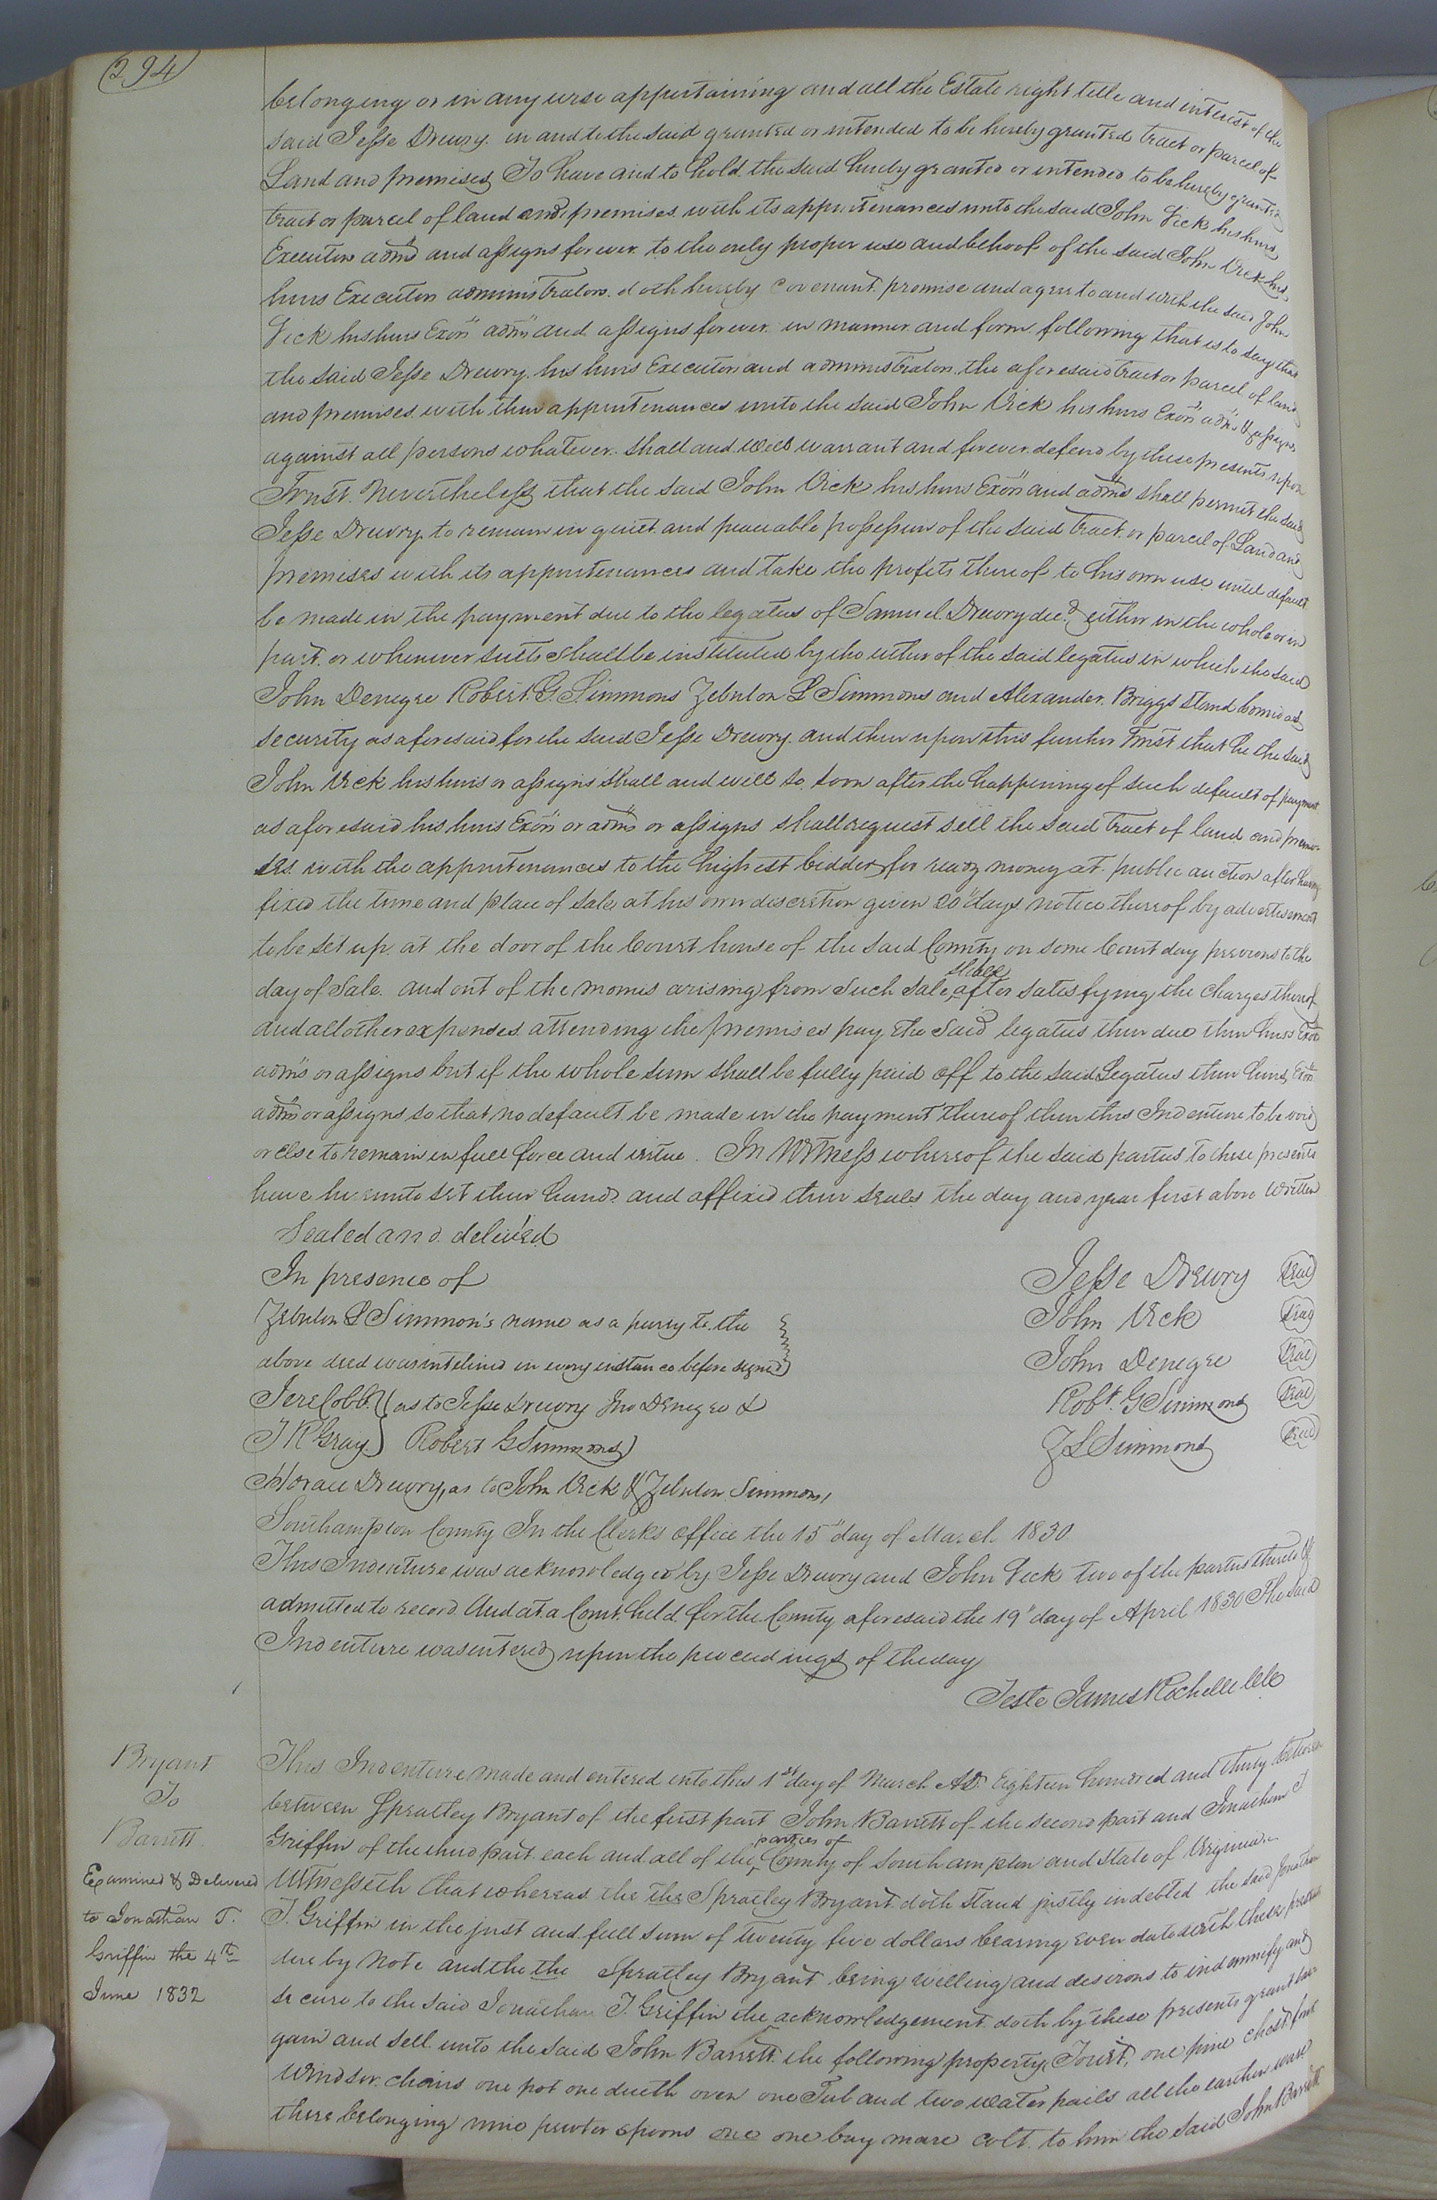 294
belonging or in any wise appertaining and all the Estate right title and interest of the
said Jesse Drewry. in and to the said granted or intended to be hereby granted tract or parcel of
Land and premises, To have and to hold the said hereby granted or intended to be hereby granted
tract or parcel of land and premises with its appurtenances unto the said John Vick his heirs
Executors adms and assigns forever. to the only proper use and behoof of the said John Vick his
heirs Executors administrators. doth hereby covenant, promise and agree to and with the said John
Vick his heirs Exors adms and assigns forever. in manner and form following that is to say that
the said Jesse Drewry. his heirs Executors and administrators. the aforesaid tract or parcel of land
and premises with their appurtenances unto the said John Vick his heirs Exors adms & assigns
against all persons whatever. shall and will warrant and forever defend by these presents upon
Trust Nevertheless, that the said John Vick his heirs Exors and adms shall permit the said
Jesse Drewry to remain in quiet and peaceable possession of the said tract or parcel of Land and
premises with its appurtenances and take the profits thereof to his own use until default
be made in the payment due to the legatees of Samuel Drewry decd either in the whole or in
part. or whenever suits shall be instituted by the either of the said legatees in which the said
John Denegre Robert G. Simmons Zebulon S Simmons and Alexander. Briggs stand bound as
security as aforesaid for the said Jesse Drewry. and then upon this further Trust that he the said
John Vick his heirs or assigns shall and will so soon after the happening of such default of payment
as aforesaid his heirs Exors or adms or assigns shall request sell the said tract of land and premi-
ses with the appurtenances to the highest bidder for ready money at public auction after having
fixed the time and place of sale at his own discretion given 20 days notice thereof by advertisement
to be set up at the door of the Court house of the said County on some Court day previous to the
shall
day of Sale. and out of the monies arising from such sale, after satisfying the charges thereof
and all other expenses attending the premises pay the said legatees their due their heirs Exors
adms or assigns but if the whole sum shall be fully paid off to the said Legatees their heirs, Exors
adms or assigns so that no default be made in the payment thereof then this Indenture to be void
or else to remain in full force and virtue. In Witness whereof the said parties to these presents
have hereunto set their hands and affixed their seals the day and year first above written
Sealed and deliv'ed
In presence of
Jesse Drewry seal
Zebulon S Simmon's name as a party to the
John Vick seal
above deed was interlined in every instance before signed
John Denegre seal
Jere Cobb as to Jesse Drewry Jno Denegre &
Robt. G Simmons seal
J R Gray Robert G Simmons
Z S Simmons seal
Horace Drewry, as to John Vick & Zebulon Simmons,
Southampton County In the Clerks office the 15th day of March 1830
This Indenture was acknowledged by Jesse Drewry and John Vick two of the parties thereto &
admitted to record And at a Court held for the County aforesaid the 19th day of April 1830 The said
Indenture was entered upon the proceedings of the day
Teste James Rochelle Clc
Bryant
To
Barrett
Examined & Delivered
to Jonathan T.
Griffin the 4th
June 1832
This Indenture made and entered into this 1st day of March AD. Eighteen hundred and thirty between
between Spratley Bryant of the first part John Barrett of the second part and Jonathan T
parties of
Griffin of the third part each and all of the County of Southampton and State of Virginia
Witnesseth that whereas the the Spratley Bryant doth stand justly indebted the said Jonathan
T. Griffin in the just and full sum of twenty five dollars bearing even date with these presents
due by Note and the the Spratley Bryant being willing and desirous to indemnify and
secure to the said Jonathan T. Griffin the acknowledgement doth by these presents grant bar-
gain and sell unto the said John Barrett the following property, Towit, one pine chest four
Windsor chairs one pot one dutch oven one Tub and two water pails all the earthen ware
there belonging nine pewter spoons one one bay mare colt. to him the said John Barrett